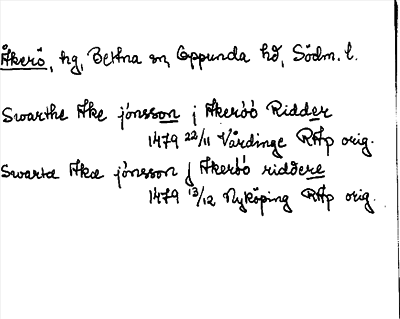 Åkerö, hg, Bettna sn, Oppunda hd, Södm. l.
Swarthe Åke jónsson j Åkeróó Ridder
1479 22/11 Vårdinge RAp orig.
Swarta Åke jónsson j Åkeróó riddere
1479 13/12 Nyköping RAp orig.